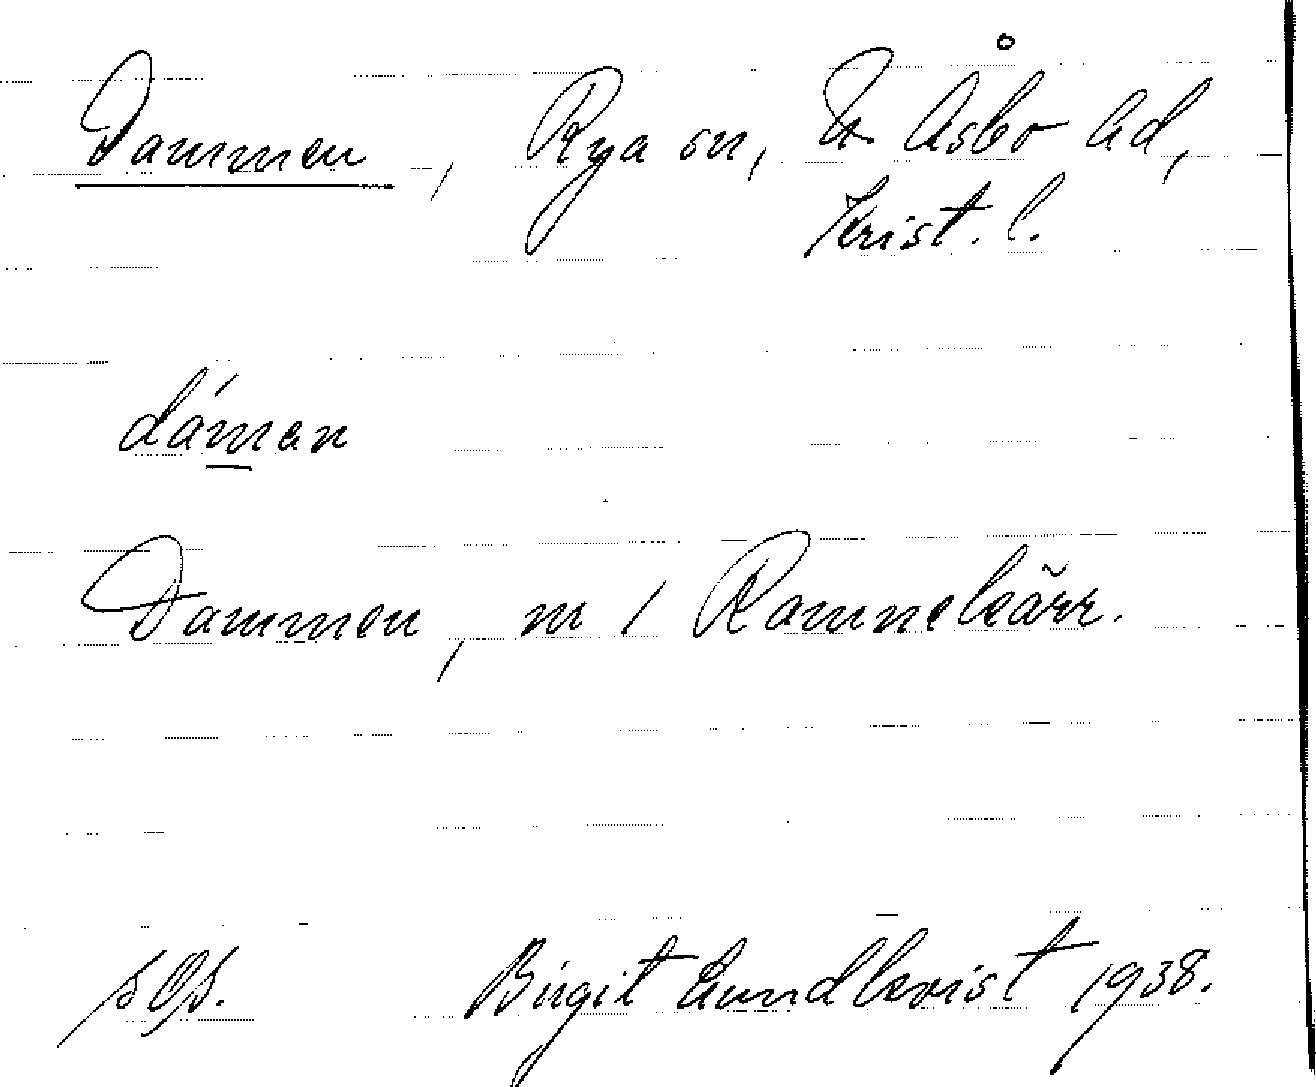 Dammen, Rya sn, N Åsbo hd,
Krist. l.
dám̲an
Dammen, m / Ramnekärr.
sOs. Birgit Lundkvist 1938.